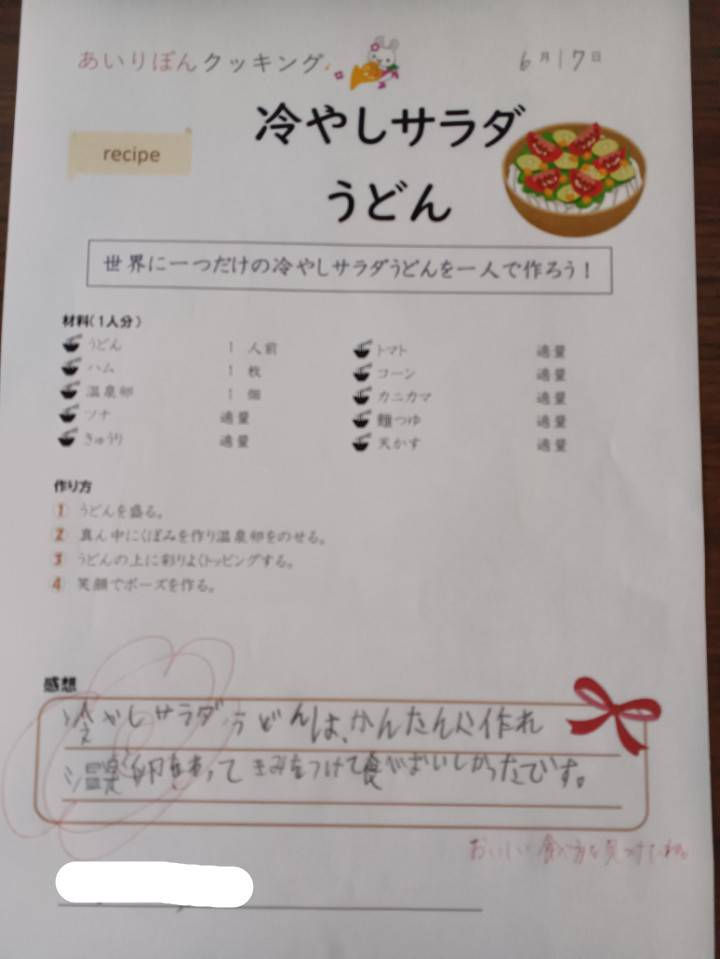 あいりぼんクッキング
6月17日
recipe
冷やしサラダ
うどん
世界に一つだけの冷やしサラダうどんを一人で作ろう！
材料(1人分)
うどん 1 人前
ハム 1 枚
温泉卵 1 個
ツナ 適量
きゅうり 適量
トマト 適量
コーン 適量
カニカマ 適量
麺つゆ 適量
天かす 適量
作り方
1 うどんを盛る。
2 真ん中にくぼみを作り温泉卵をのせる。
3 うどんの上に彩りよくトッピングする。
4 笑顔でポーズを作る。
感想
冷やしサラダうどんは、かんたんに作れ
温泉卵をわって きみをつけて食べおいしかったです。
おいしい食べ方を見つけたね